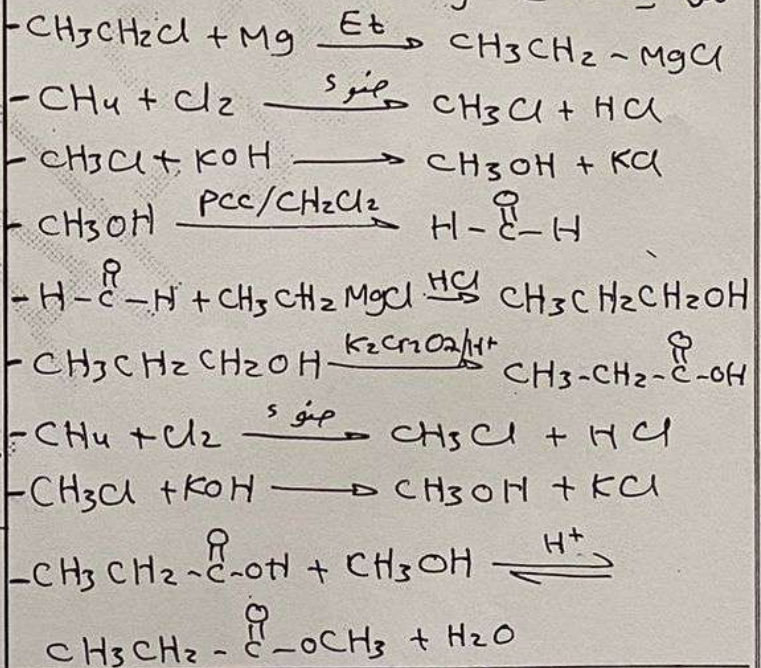 - CH3CH2Cl + Mg —Et→ CH3CH2 - MgCl
- CH4 + Cl2 —ضوء→ CH3Cl + HCl
- CH3Cl + KOH → CH3OH + KCl
- CH3OH —PCC/CH2Cl2→ H-C(=O)-H
- H-C(=O)-H + CH3CH2MgCl —HCl→ CH3CH2CH2OH
- CH3CH2CH2OH —K2Cr2O2/H+→ CH3-CH2-C(=O)-OH
- CH4 + Cl2 —ضوء→ CH3Cl + HCl
- CH3Cl + KOH → CH3OH + KCl
- CH3CH2-C(=O)-OH + CH3OH —H+⇌
CH3CH2-C(=O)-OCH3 + H2O